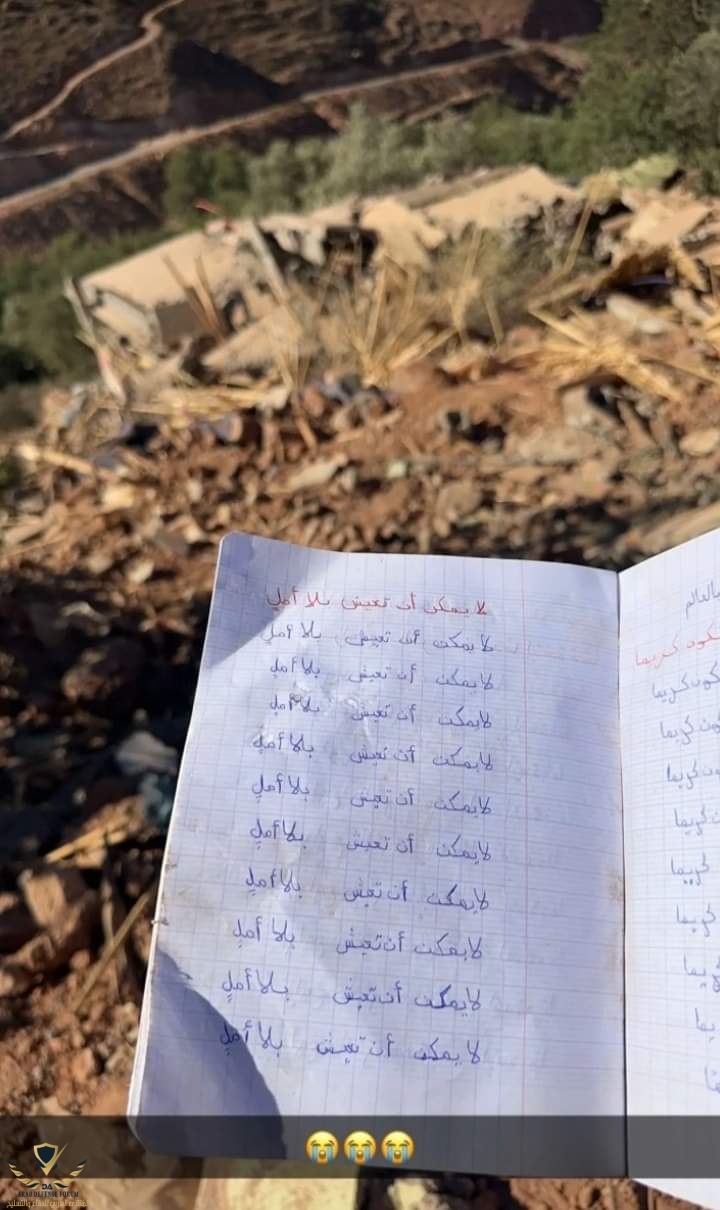 لا يمكن أن تعيش بلا أملٍ
لا يمكن أن تعيش بلا أملٍ
لا يمكن أن تعيش بلا أملٍ
لا يمكن أن تعيش بلا أملٍ
لا يمكن أن تعيش بلا أملٍ
لا يمكن أن تعيش بلا أملٍ
لا يمكن أن تعيش بلا أملٍ
لا يمكن أن تعيش بلا أملٍ
لا يمكن أن تعيش بلا أملٍ
لا يمكن أن تعيش بلا أملٍ
لا يمكن أن تعيش بلا أملٍ
كريما
كريما
كريما
كريما
كريما
كريما
😭😭😭
DA
ARAB DEFENSE FORUM